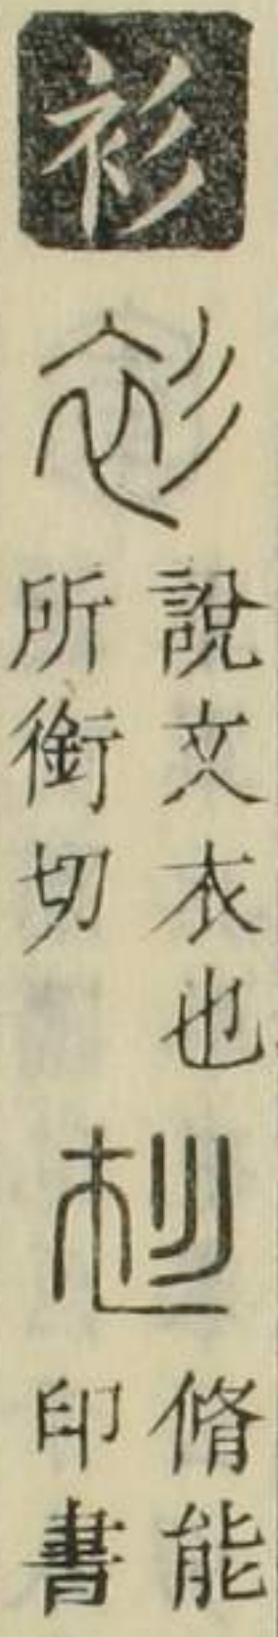 衫
衫
說文衣也
所銜切
衫
脩能
印書